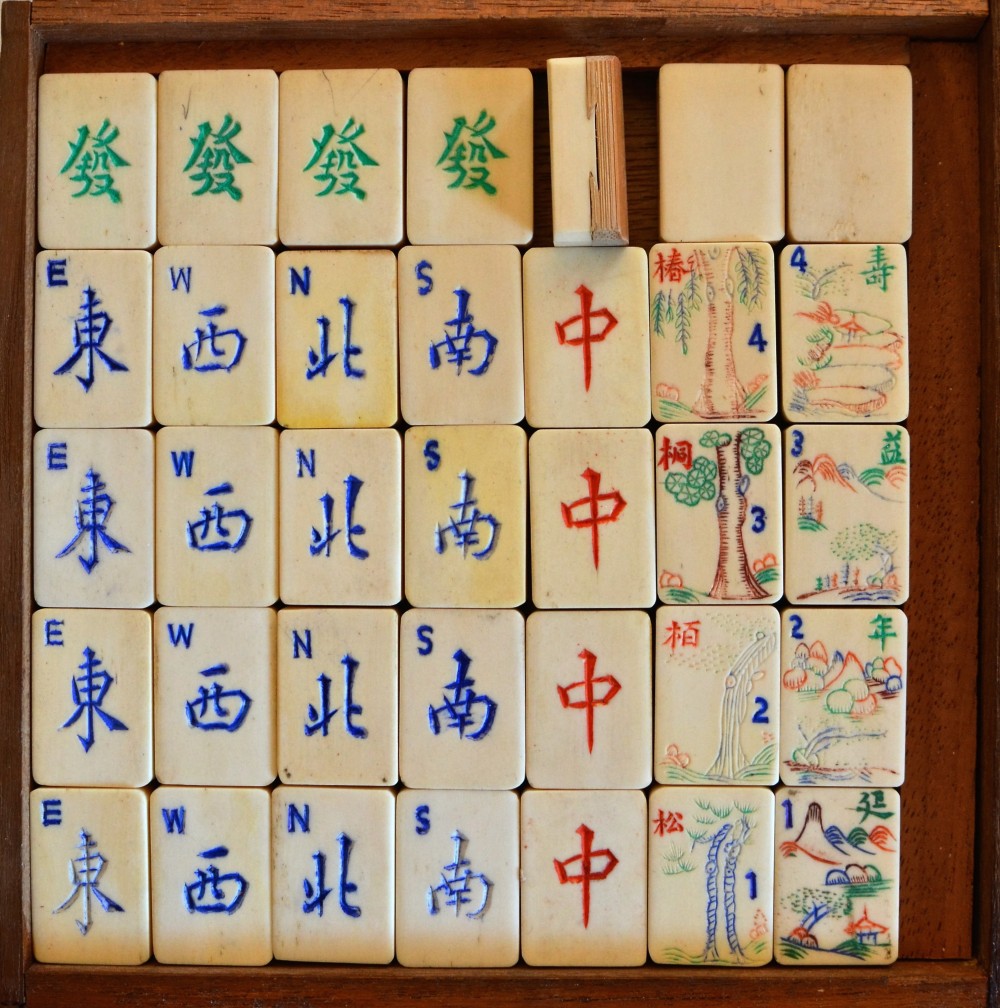 發 發 發 發
E 東 W 西 N 北 S 南 中 椿 4 4 寿
E 東 W 西 N 北 S 南 中 桐 3 3 益
E 東 W 西 N 北 S 南 中 栢 2 2 年
E 東 W 西 N 北 S 南 中 松 1 1 延